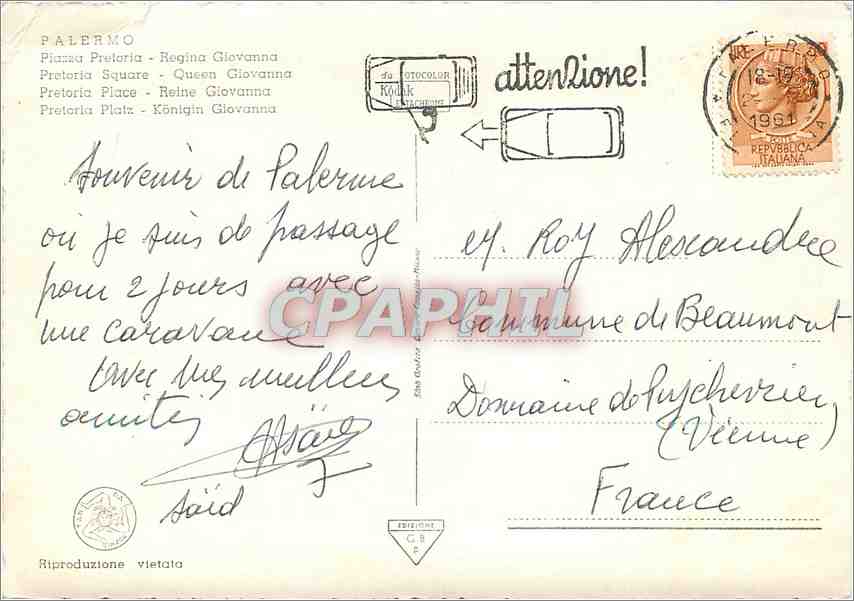 PALERMO
Piazza Pretoria - Regina Giovanna
Pretoria Square - Queen Giovanna
Pretoria Place - Reine Giovanna
Pretoria Platz - Königin Giovanna
da FOTOCOLOR
Kodak
EKTACHROME
attenzione!
LIRE
18-19
1961
POSTE
REPVBBLICA
ITALIANA
Souvenir de Palerme
où je suis de passage
pour 2 jours avec
une caravane
avec mes meilleures
amitiés
Saïd
M. Roy Alexandre
Commune de Beaumont
Domaine de
(Vienne)
France
CPAPHIL
EDIZIONE
G. B.
P.
Riproduzione vietata